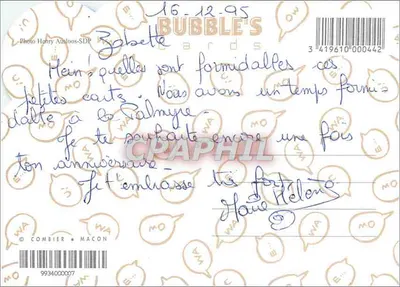 16-12-95
BUBBLE'S
Cards
Photo Henry Ausloos-SDP
3 419610 000442
Babette
Hein, quelles sont formidables ces
petites cartes. Nous avons un temps formi-
dable à la Palmyre.
Je te souhaite encore une fois
ton anniversaire.
CPAPHIL
Je t'embrasse très fort
Marie Hélène
© COMBIER MACON
9934000007